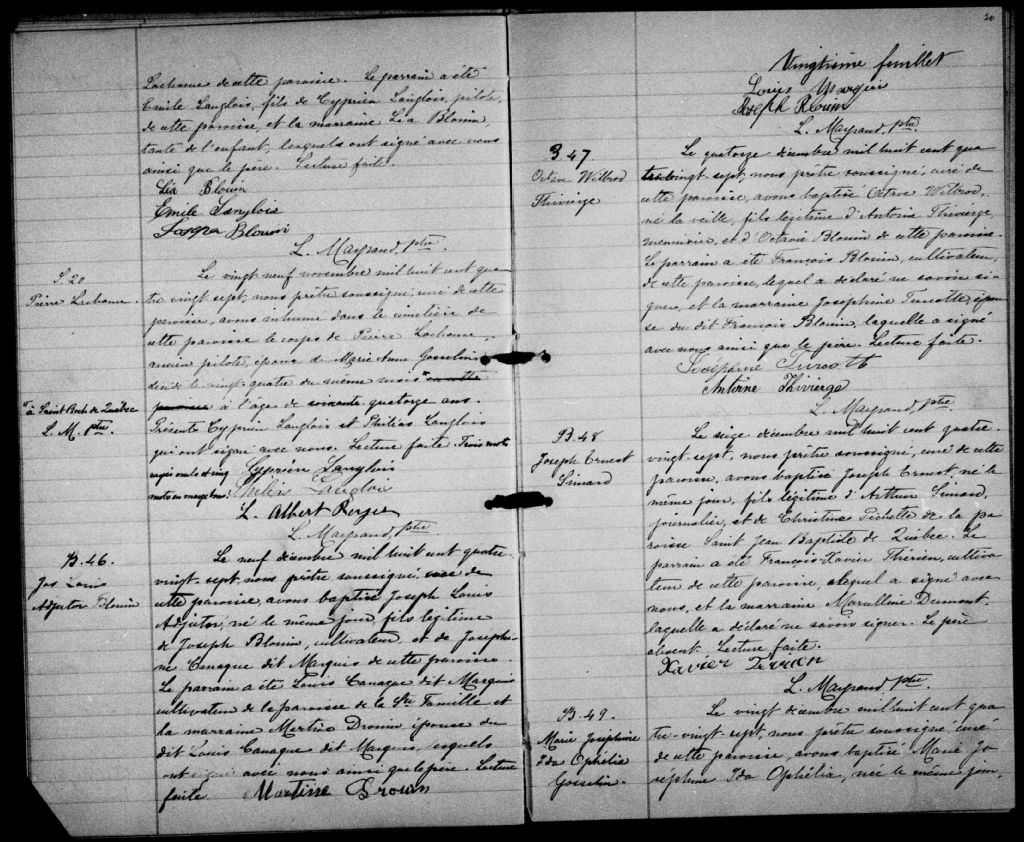 Lachance de cette paroisse. Le parrain a été
Emile Langlois, fils de Cyprien Langlois, pilote,
de cette paroisse, et la marraine Léa Blouin,
tante de l'enfant, lesquels ont signé avec nous
ainsi que le père. Lecture faite.
Léa Blouin
Emile Langlois
Joseph Blouin
L. Mayrand, ptre
S. 20
Pierre Lachance
Le vingt neuf novembre mil huit cent qua
tre vingt sept, nous prêtre soussigné, curé de cette
paroisse, avons inhumé dans le cimetière de
cette paroisse le corps de Pierre Lachance,
ancien pilote, époux de Marie Anne Gosselin,
décédé le vingt quatre du même mois en cette
paroisse à l'âge de soixante quatorze ans.
à Saint Roch de Québec
L. M. ptre.
Présents Cyprien Langlois et Philéas Langlois
qui ont signé avec nous. Lecture faite. Trois mots
rayés nuls et cinq
mots en marge bons.
Cyprien Langlois
Philéas Langlois
L. Albert Roger
L. Mayrand, ptre
B. 46.
Jos Louis
Adjutor Blouin
Le neuf décembre mil huit cent quatre
vingt-sept, nous prêtre soussigné, curé de
cette paroisse, avons baptisé Joseph Louis
Adjutor, né le même jour, fils légitime
de Joseph Blouin, cultivateur, et de Joséphi-
ne Canaque dit Marquis de cette paroisse.
Le parrain a été Louis Canaque dit Marquis
cultivateur de la paroisse de la Ste Famille et
la marraine Martine Drouin épouse du
dit Louis Canaque dit Marquis, lesquels
ont signé avec nous ainsi que le père. Lecture
faite
Martine Drouin
20
Vingtième feuillet
Louis Marquis
Joseph Blouin
L. Mayrand, ptre
B 47.
Octave Wilbrod
Thivierge
Le quatorze décembre mil huit cent qua
tre vingt-sept, nous prêtre soussigné, curé de
cette paroisse, avons baptisé Octave Wilbrod,
né la veille, fils légitime d'Antoine Thivierge,
menuisier, et d'Octavie Blouin de cette paroisse.
Le parrain a été François Blouin, cultivateur,
de cette paroisse, lequel a déclaré ne savoir si-
gner, et la marraine Josephine Turcotte, épou
se du dit François Blouin, laquelle a signé
avec nous ainsi que le père. Lecture faite.
Joséphine Turcotte
Antoine Thivierge
L. Mayrand, ptre
B. 48
Joseph Ernest
Simard
Le seize décembre mil huit cent quatre-
vingt-sept, nous prêtre soussigné, curé de cette
paroisse, avons baptisé Joseph Ernest, né le
même jour, fils légitime d'Arthur Simard,
journalier, et de Christine Pichette de la pa
roisse Saint Jean Baptiste de Québec. Le
parrain a été François-Xavier Thérien, cultiva
teur de cette paroisse, lequel a signé avec
nous, et la marraine Marcelline Dumont,
laquelle a déclaré ne savoir signer. Le père
absent. Lecture faite.
Xavier Terrien
L. Mayrand ptre.
B. 49.
Marie Joséphine
Ida Ophélia
Gosselin.
Le vingt décembre mil huit cent qua
tre-vingt-sept, nous prêtre soussigné, curé
de cette paroisse, avons baptisé Marie Jo
sephine Ida Ophélia, née le même jour,